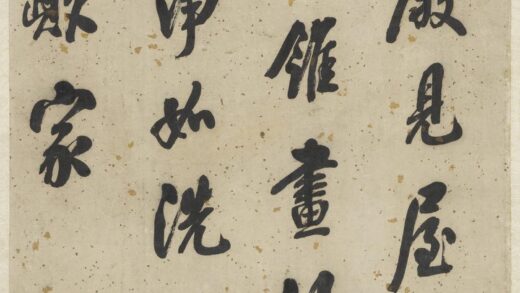 見屋
錐畫
淨如洗
家